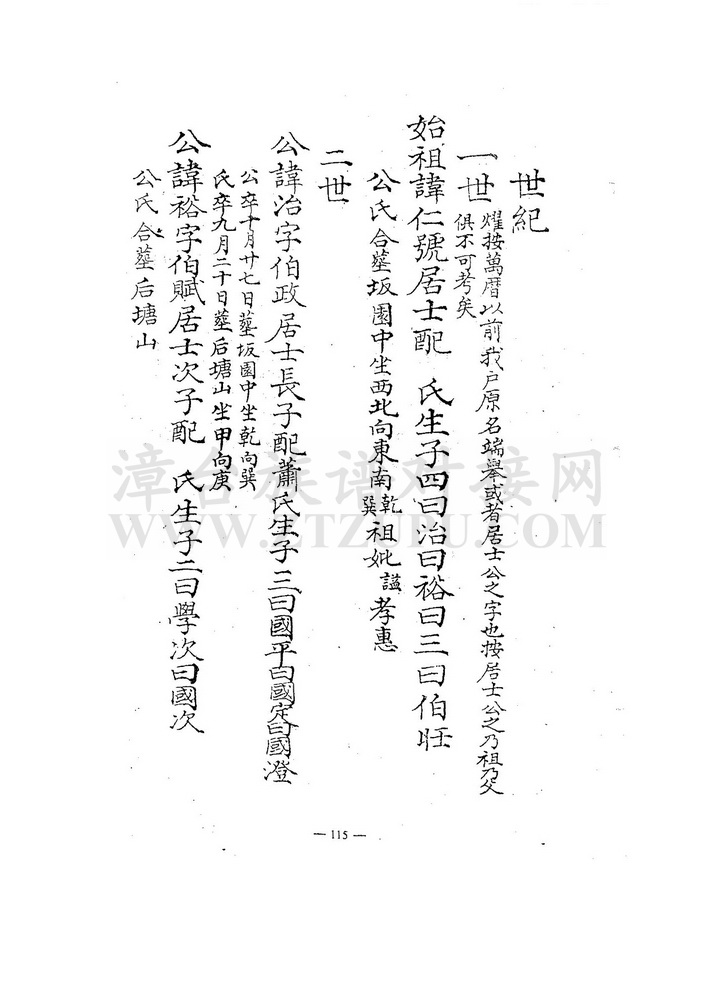 世紀
一世
燿按萬曆以前我戶原名端舉或者居士公之字也按居士公之乃祖乃父
俱不可考矣
始祖諱仁號居士配 氏生子四曰治曰裕曰三曰伯旺
公氏合墓坂園中坐西北向東南乾巽祖妣謚孝惠
二世
公諱治字伯政居士長子配蕭氏生子三曰國平曰國定曰國澄
公卒十月廿七日墓坂園中坐乾向巽
氏卒九月二十日墓后塘山坐甲向庚
公諱裕字伯賦居士次子配 氏生子二曰學次曰國次
公氏合墓后塘山
漳台族谱对接网
WWW.ZTZUPU.COM
— 115 —